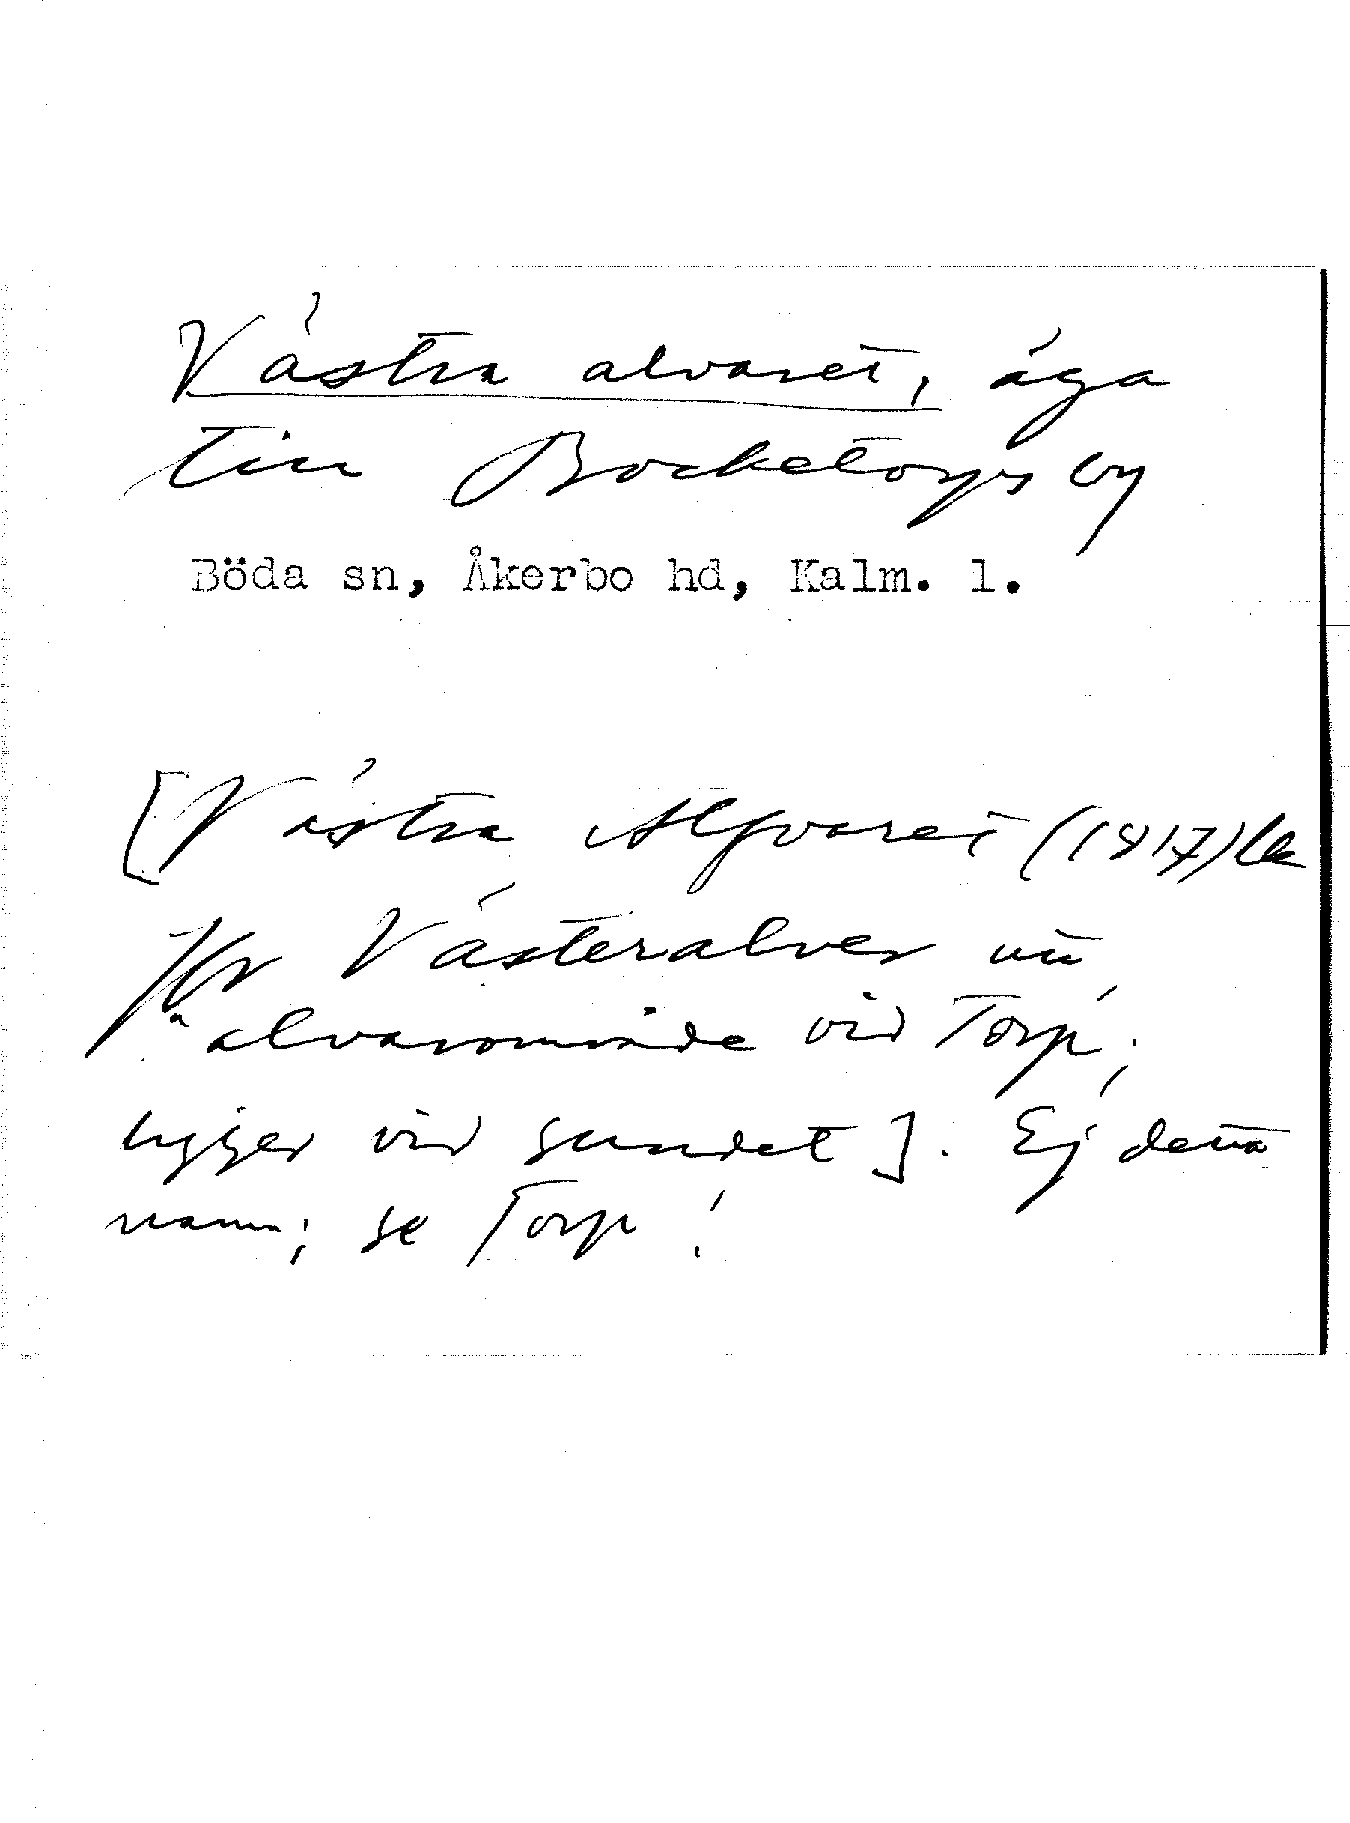 Västra alvaret, äga
till Bocketorps by
Böda sn, Åkerbo hd, Kalm. l.
[Västra Alfvaret (1817) La
Jfr Västeralver
"alvarområde vid Torp;
ligger vid sundet]. Ej detta
namn; se Torp!